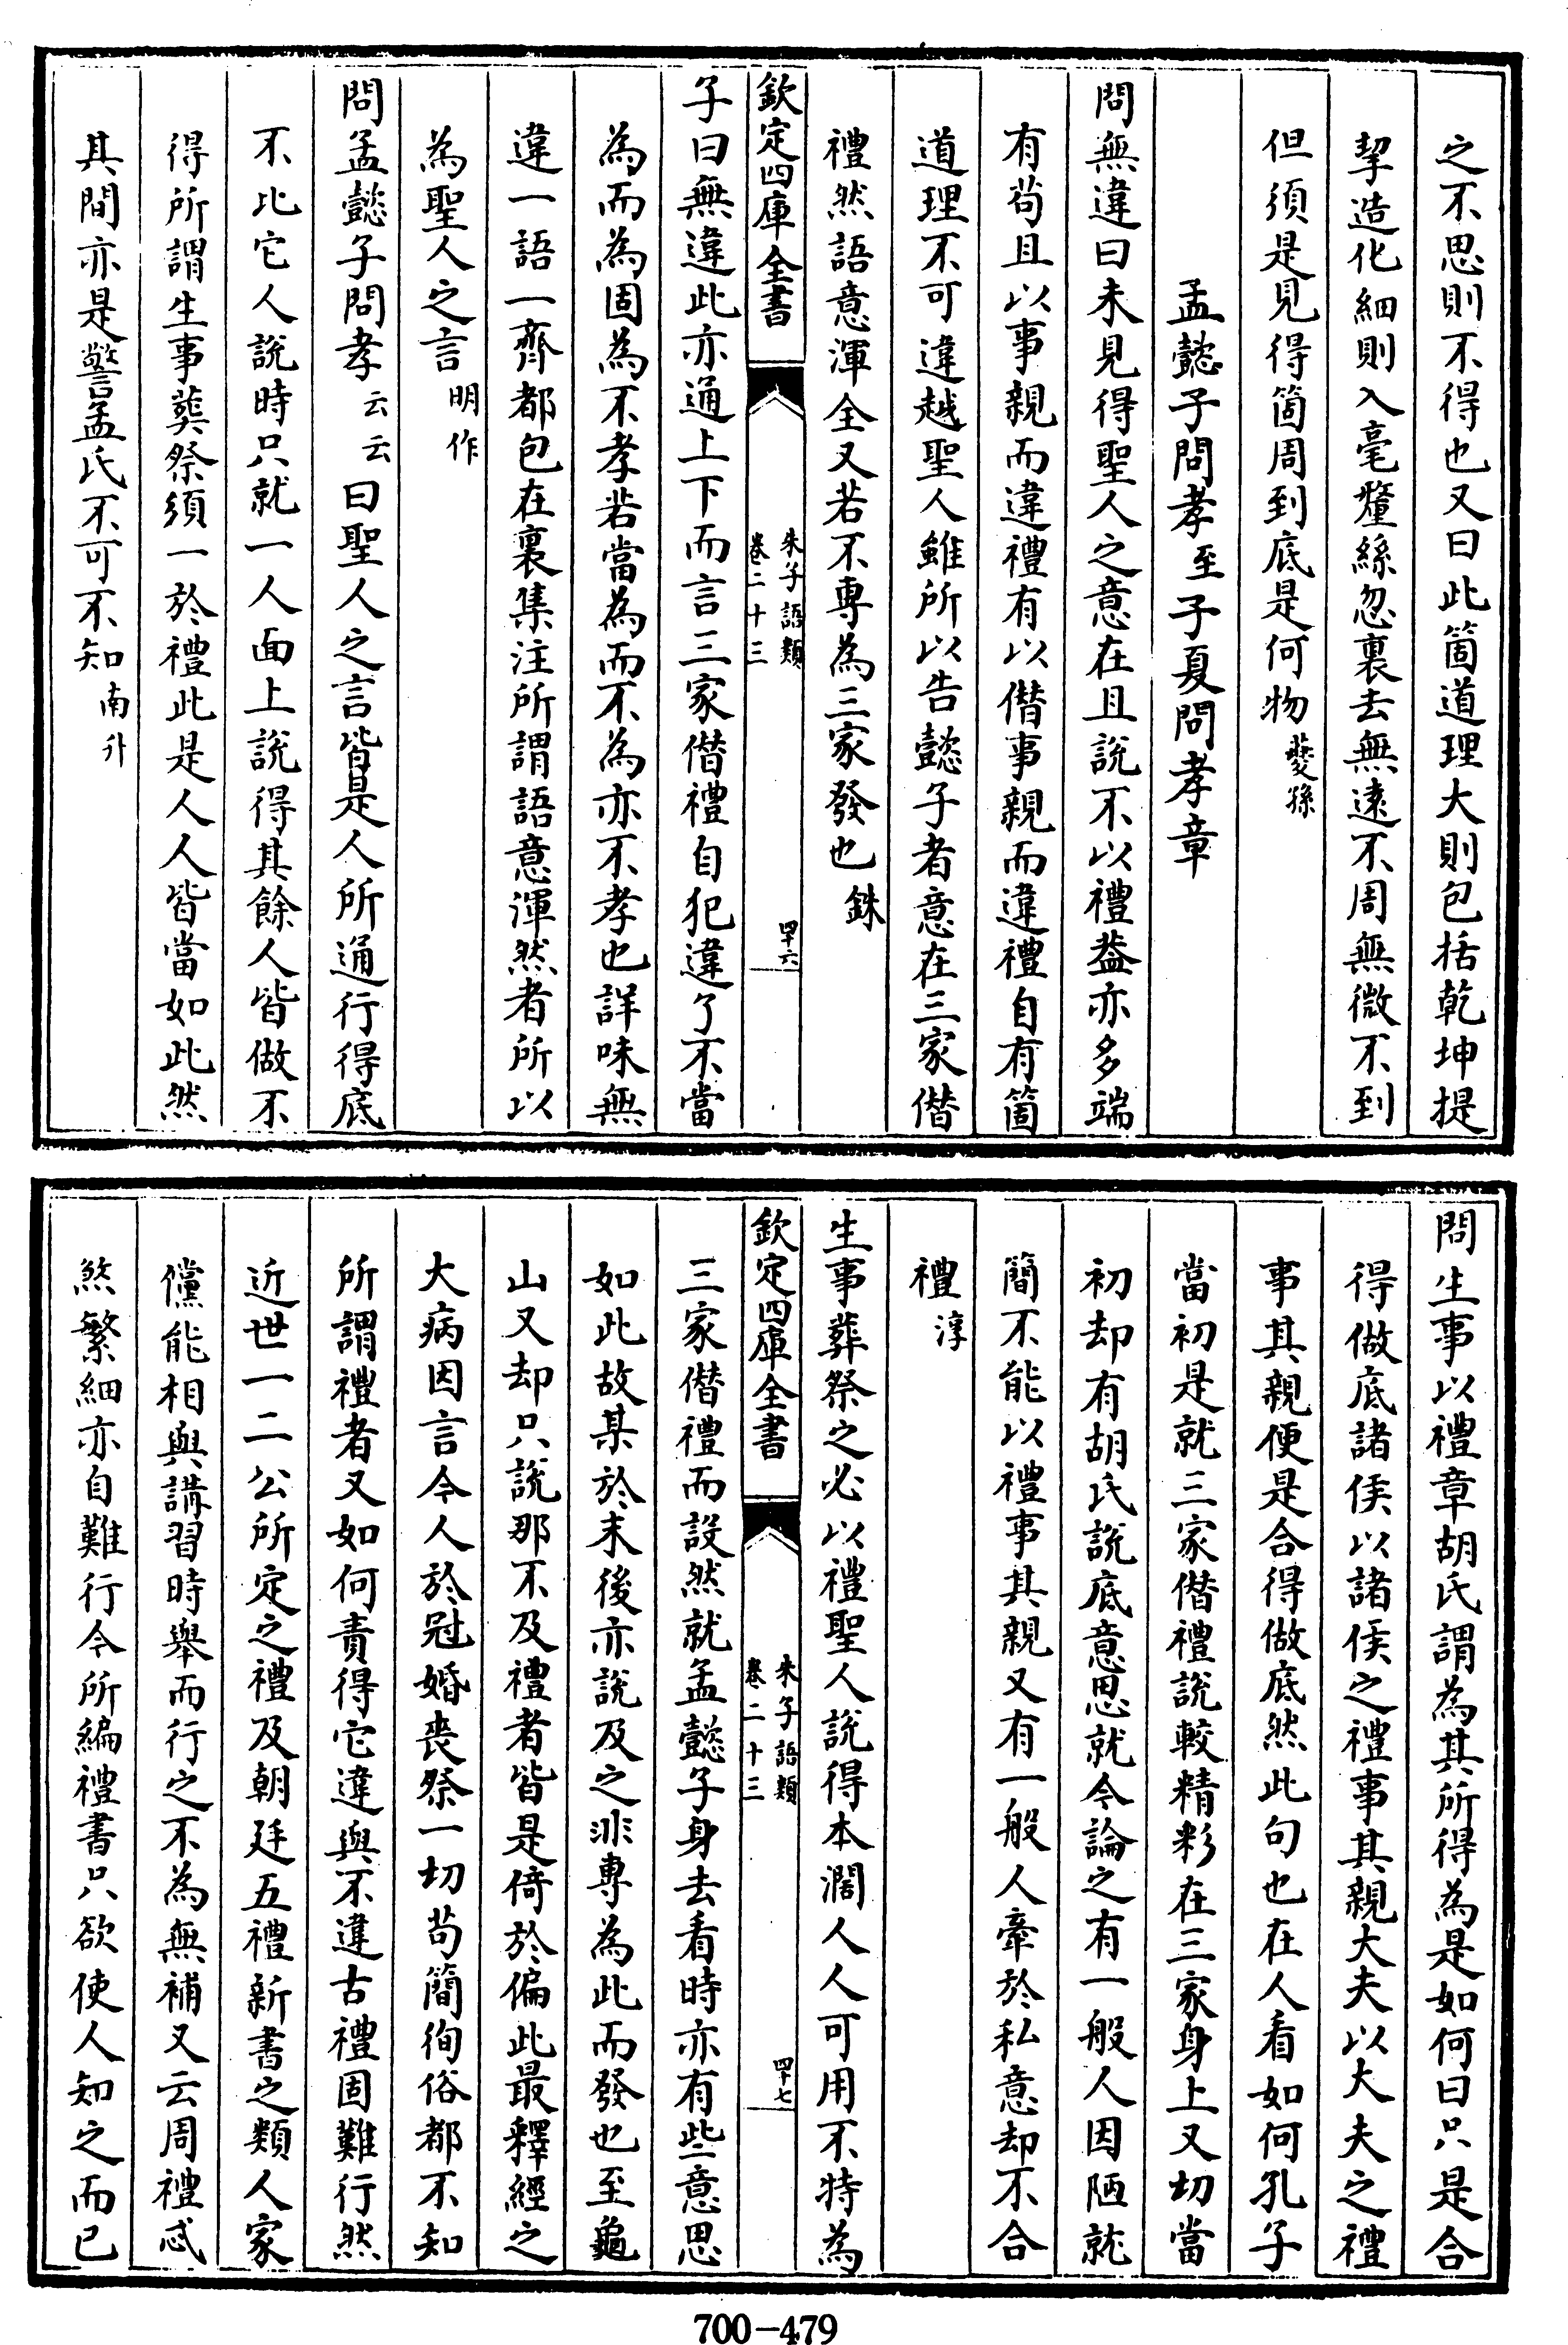 之不思則不得也又曰此箇道理大則包括乾坤提
挈造化細則入毫釐絲忽裏去無遠不周無微不到
但須是見得箇周到底是何物夔孫
孟懿子問孝至子夏問孝章
問無違曰未見得聖人之意在且說不以禮葢亦多端
有苟且以事親而違禮有以僭事親而違禮自有箇
道理不可違越聖人雖所以告懿子者意在三家僭
禮然語意渾全又若不專為三家發也銖
欽定四庫全書
朱子語類
卷二十三
四十六
子曰無違此亦通上下而言三家僭禮自犯違了不當
為而為固為不孝若當為而不為亦不孝也詳味無
違一語一齊都包在裏集注所謂語意渾然者所以
為聖人之言明作
問孟懿子問孝云云曰聖人之言皆是人所通行得底
不比它人說時只就一人面上說得其餘人皆做不
得所謂生事葬祭須一於禮此是人人皆當如此然
其間亦是警孟氏不可不知南升
問生事以禮章胡氏謂為其所得為是如何曰只是合
得做底諸侯以諸侯之禮事其親大夫以大夫之禮
事其親便是合得做底然此句也在人看如何孔子
當初是就三家僭禮說較精彩在三家身上又切當
初却有胡氏說底意思就今論之有一般人因陋就
簡不能以禮事其親又有一般人牽於私意却不合
禮淳
生事葬祭之必以禮聖人說得本濶人人可用不特為
欽定四庫全書
朱子語類
卷二十三
四十七
三家僭禮而設然就孟懿子身去看時亦有些意思
如此故某於末後亦說及之非專為此而發也至龜
山又却只說那不及禮者皆是倚於偏此最釋經之
大病因言今人於冠婚喪祭一切苟簡徇俗都不知
所謂禮者又如何責得它違與不違古禮固難行然
近世一二公所定之禮及朝廷五禮新書之類人家
儻能相與講習時舉而行之不為無補又云周禮忒
煞繁細亦自難行今所編禮書只欲使人知之而已
700-479